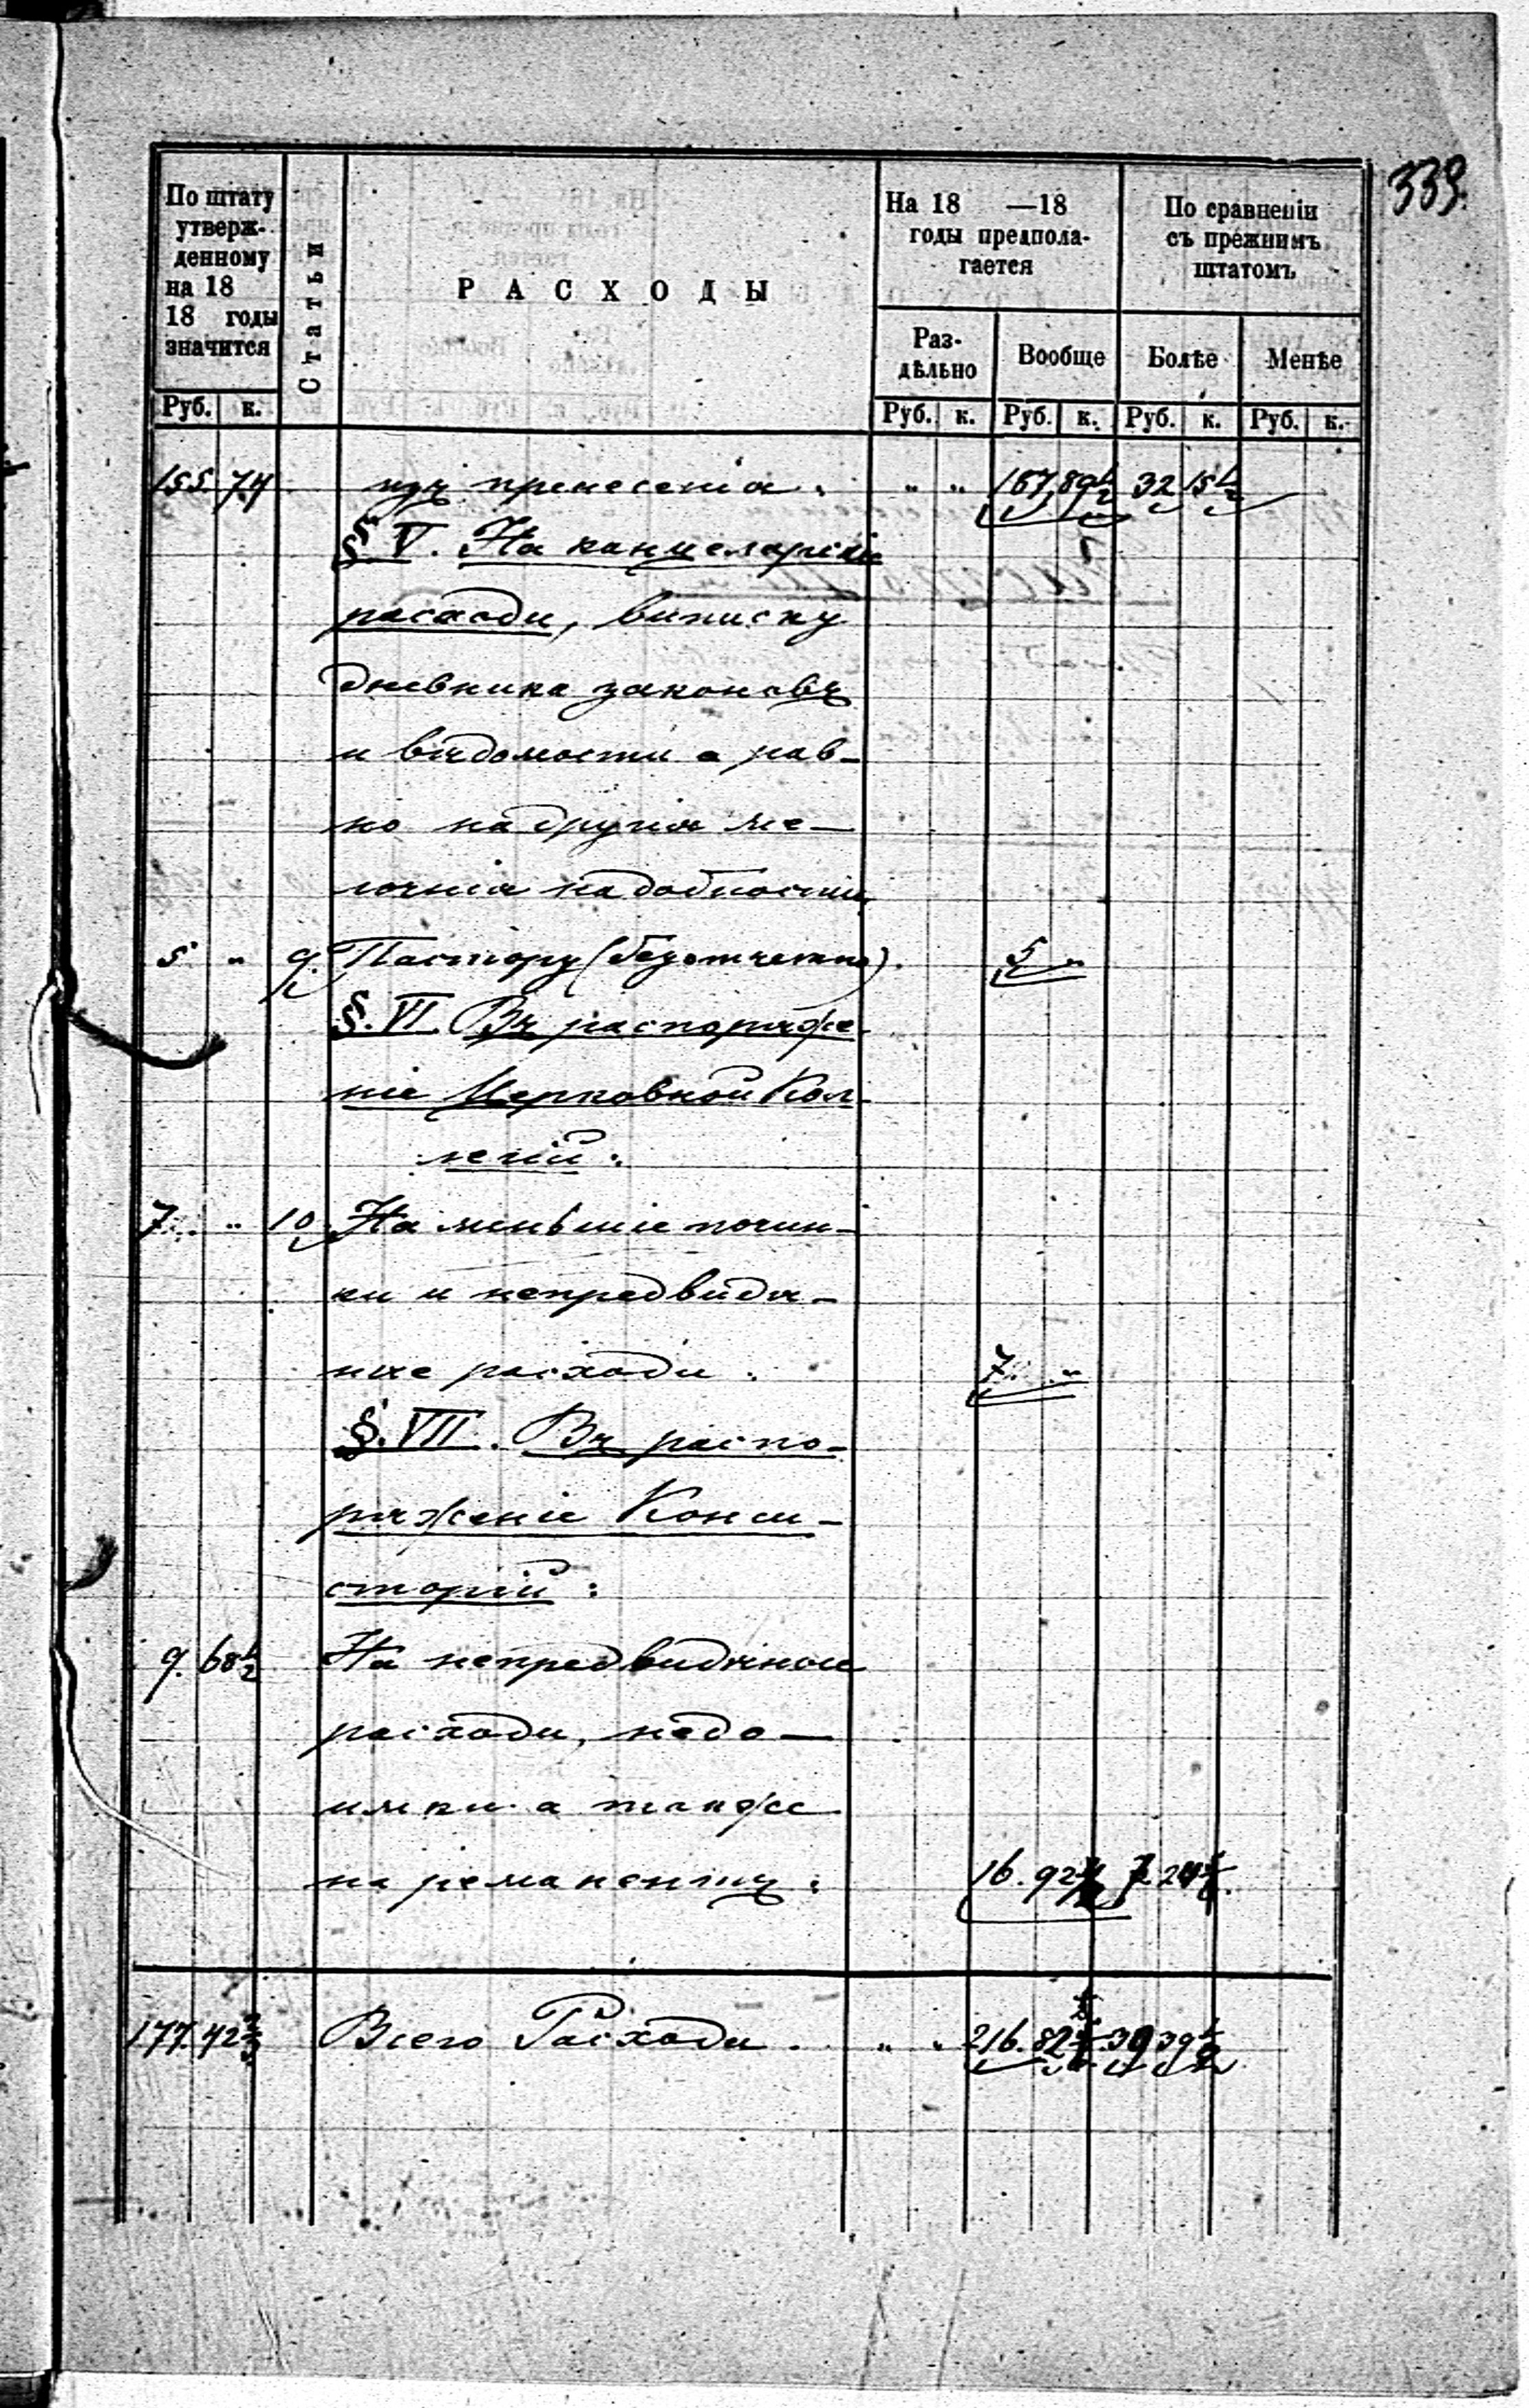 339.
По штату утверж- денному на 18 18 годы значится
Статьи
РАСХОДЫ
На 18 —18 годы предпола- гается
По сравненіи съ прежнимъ штатомъ
Раз- дѣльно
Вообще
Болѣе
Менѣе
Руб. к. Руб. к. Руб. к. Руб. к. Руб. к.
155. 74 изъ пренесенія. " " 187 89½ 32 15½
§ V. На канцелярскіе
расходы, выписку
дневника законовъ
и вѣдомости а рав-
но на другія ме-
лочнія надобности,
5 " 9. Пастору (безотчетно). 5 "
§. VI. Въ распоряже-
ніе Церковной Кол-
легіи:
7. " 10. На меньшіе почин-
ки и непредвидѣ-
ные расходы. 7. "
§. VII. Въ распо-
ряженіе Конси-
сторіи:
9. 68½ На непредвидѣнные
расходы, недо-
имки а также
на ремонентъ: 16. 92 7 24
177. 42 Всего Расходы. " " 216. 82 39 39½